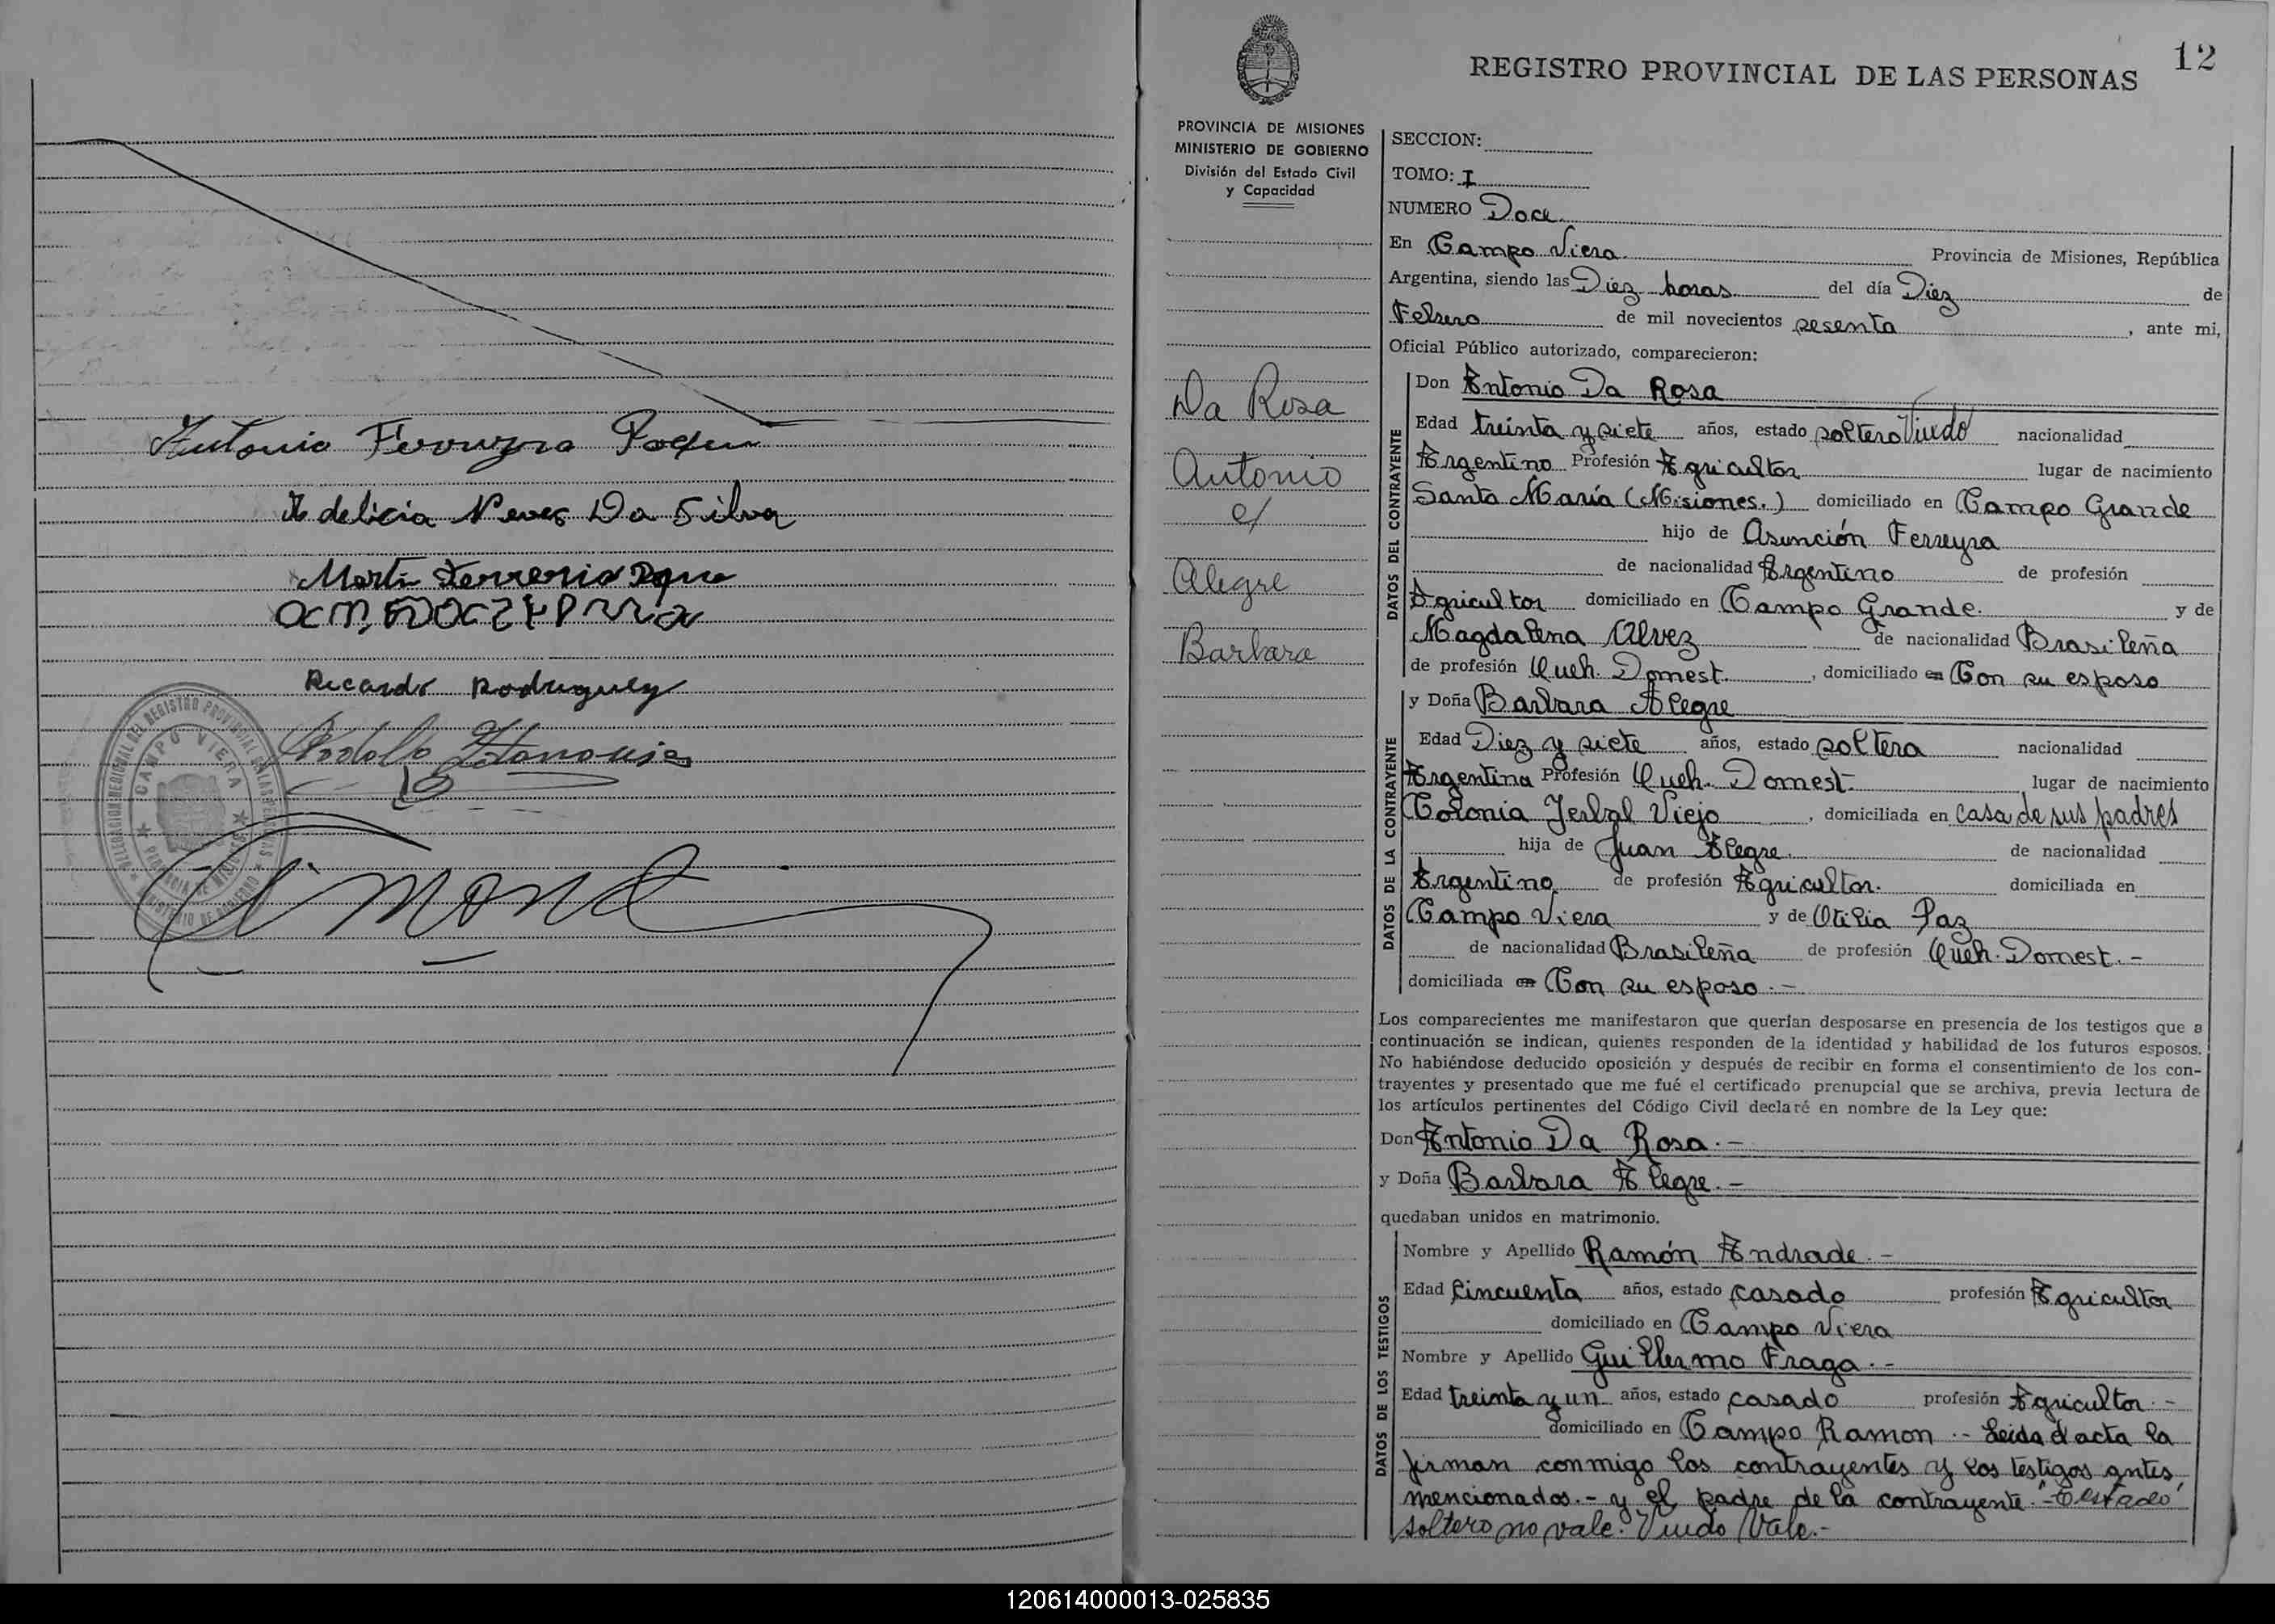 Antonio Ferreyra Roque
Adelicia Neves Da Silva
Martin Ferreria Roque
Ricardo Rodriguez
Rodolfo
DELEGACION REGIONAL DEL REGISTRO PROVINCIAL DE LAS PERSONAS
CAMPO VIERA
PROVINCIA DE MISIONES
MINISTERIO DE GOBIERNO
12
REGISTRO PROVINCIAL DE LAS PERSONAS
PROVINCIA DE MISIONES
MINISTERIO DE GOBIERNO
División del Estado Civil
y Capacidad
Da Rosa
Antonio
c/
Alegre
Barbara
SECCION:
TOMO: I
NUMERO Doce
En Campo Viera Provincia de Misiones, República
Argentina, siendo las Diez horas del día Diez de
Febrero de mil novecientos sesenta, ante mi,
Oficial Público autorizado, comparecieron:
DATOS DEL CONTRAYENTE
Don Antonio Da Rosa
Edad treinta y siete años, estado soltero Viudo nacionalidad
Argentino Profesión Agricultor lugar de nacimiento
Santa María (Misiones.) domiciliado en Campo Grande
hijo de Asunción Ferreyra
de nacionalidad Argentino de profesión
Agricultor domiciliado en Campo Grande. y de
Magdalena Alvez de nacionalidad Brasileña
de profesión Queh. Domest., domiciliado en Con su esposo
DATOS DE LA CONTRAYENTE
y Doña Barbara Alegre
Edad Diez y siete años, estado soltera nacionalidad
Argentina Profesión Queh. Domest. lugar de nacimiento
Colonia Yerbal Viejo, domiciliada en casa de sus padres
hija de Juan Alegre. de nacionalidad
Argentino de profesión Agricultor. domiciliada en
Campo Viera y de Otilia Paz
de nacionalidad Brasileña de profesión Queh. Domest. -
domiciliada en Con su esposo. -
Los comparecientes me manifestaron que querían desposarse en presencia de los testigos que a
continuación se indican, quienes responden de la identidad y habilidad de los futuros esposos.
No habiéndose deducido oposición y después de recibir en forma el consentimiento de los con-
trayentes y presentado que me fué el certificado prenupcial que se archiva, previa lectura de
los artículos pertinentes del Código Civil declaré en nombre de la Ley que:
Don Antonio Da Rosa. -
y Doña Barbara Alegre. -
quedaban unidos en matrimonio.
DATOS DE LOS TESTIGOS
Nombre y Apellido Ramón Andrade. -
Edad Cincuenta años, estado casado profesión Agricultor
domiciliado en Campo Viera
Nombre y Apellido Guillermo Fraga. -
Edad treinta y un años, estado casado profesión Agricultor. -
domiciliado en Campo Ramon. - Leida el acta la
firman conmigo los contrayentes y los testigos antes
mencionados. - y el padre de la contrayente. - "Testado"
soltero no vale. Viudo Vale. -
120614000013-025835